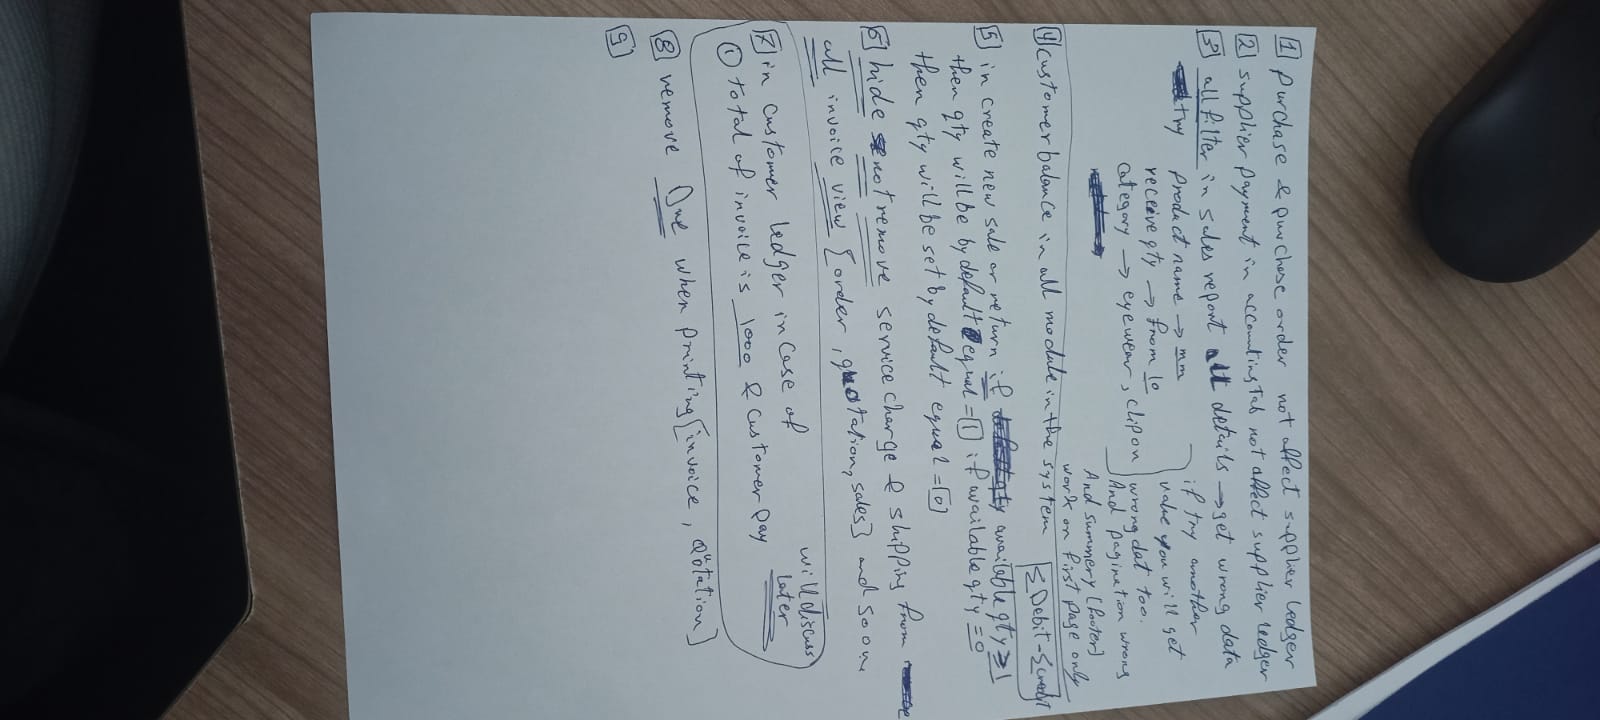 1 Purchase & purchase order not affect supplier ledger
2 supplier payment in accounting Tab not affect supplier ledger
3 all filter in sales report all details → get wrong data
try Product name → mm
receive qty → from 10
Category → eyewear, clip on
if try another
value you will get
wrong dat too.
And pagination wrong
And summery (footer)
work on first page only
4 customer balance in all module in the system Σ Debit - Σ credit
5 in create new sale or return if available qty ≥ 1
then qty will be by default equal = 1 if available qty = 0
then qty will be set by default equal = 0
6 hide not remove service charge & shipping from
all invoice view [order, quotation, sales] and so on
7 in customer ledger in case of will discuss
Later
① total of invoice is 1000 & customer pay
8 remove Due when printing [invoice, Quotation]
9